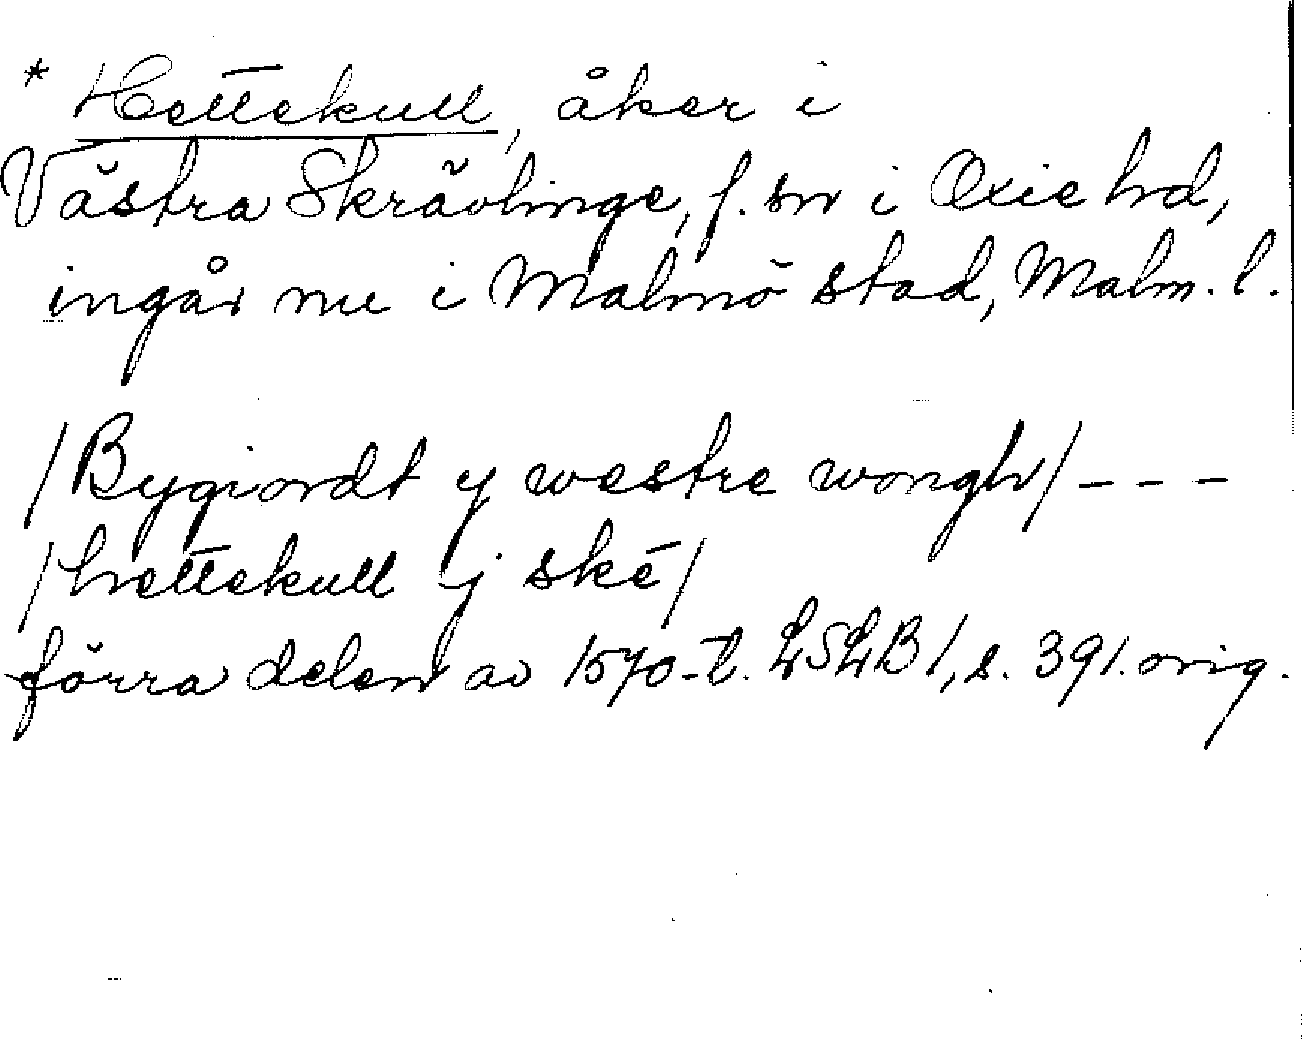 * Hettekull, åker i
Västra Skrävlinge, f. sn i Oxie hd,
ingår nu i Malmö stad, Malm. l.
/Bygiordt y westre wongh/ - - -
/hvettekull y ske/
förra delen av 1570-t. LSLB 1, s. 391. orig.